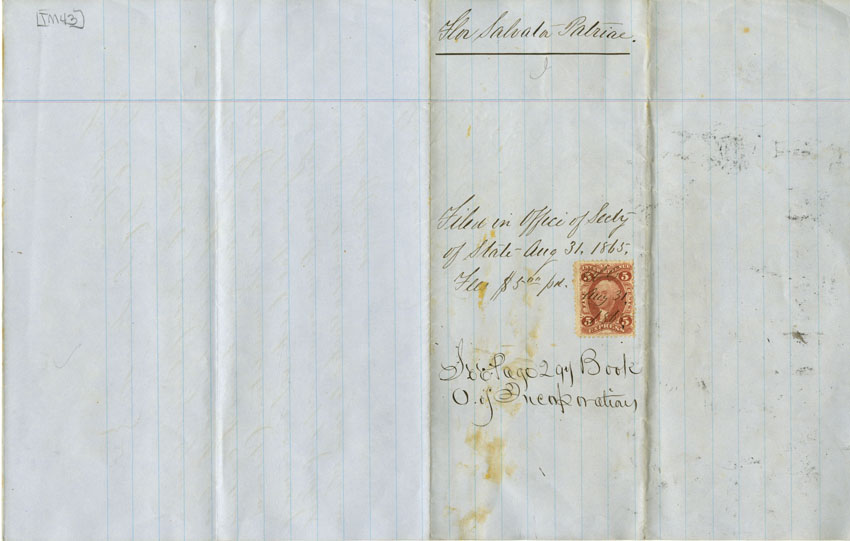 [TM43]
Flor Salvator Patriae.
Filed in Office of Secty
of State Aug 31, 1865.
Fee $5.00 pd.
5 5
Aug 31
5 5
EXPRESS
See Page 299 Book
O. of Incorporations